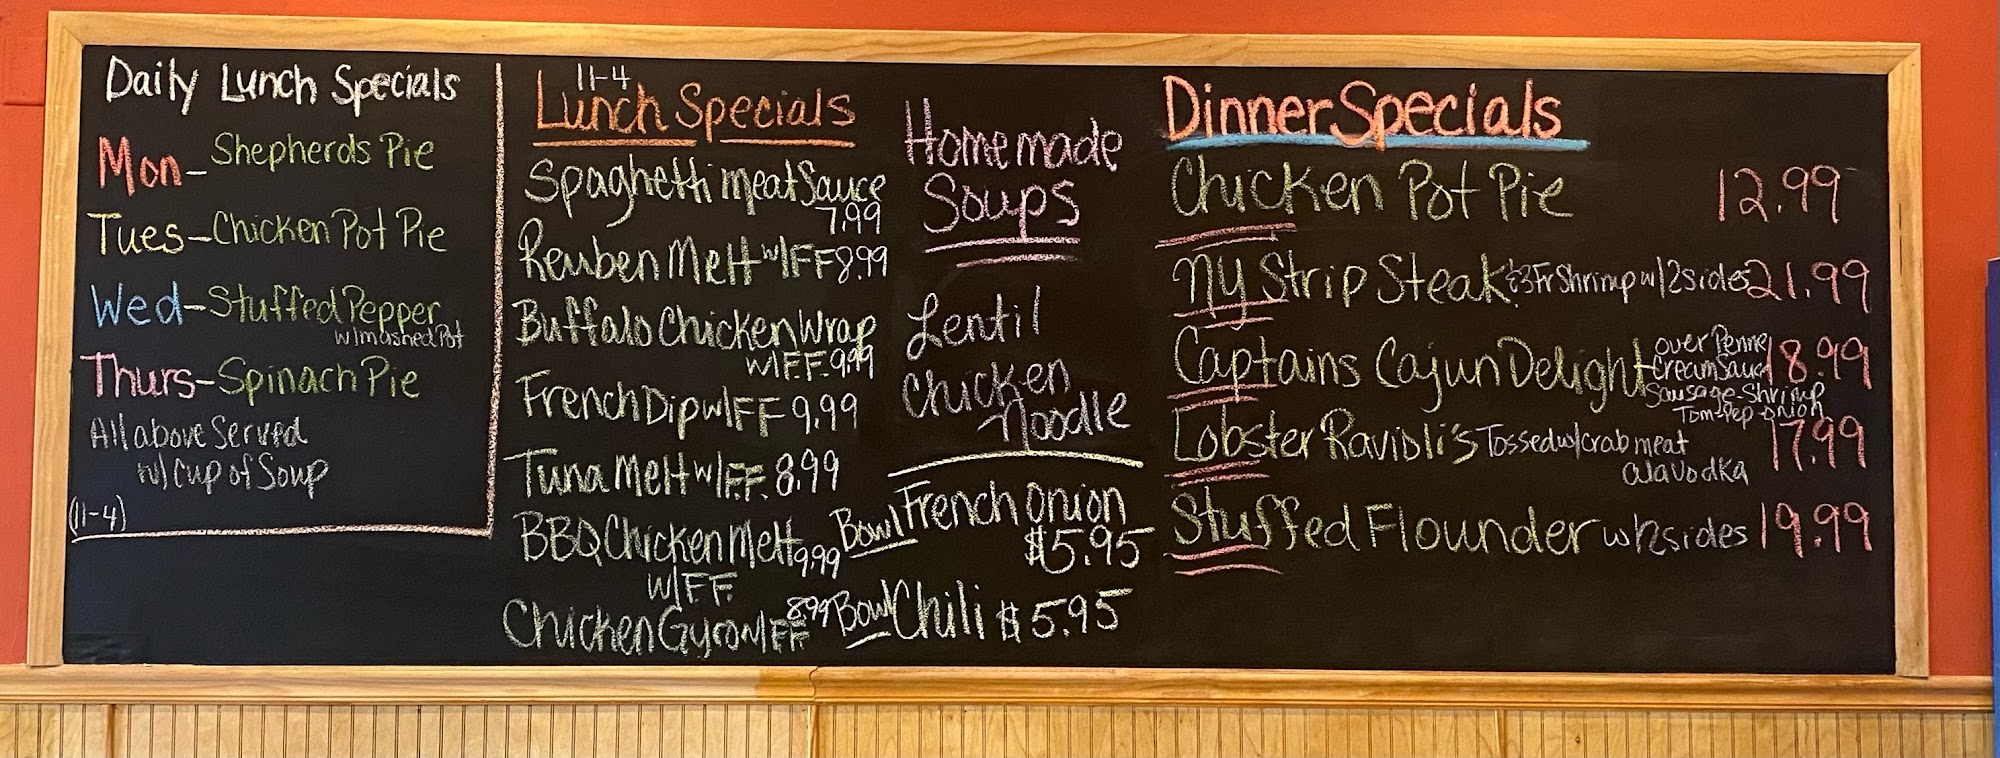 Daily Lunch Specials
Mon- Shepherds Pie
Tues-Chicken Pot Pie
Wed-Stuffed Pepper
w/mashed Pot
Thurs-Spinach Pie
All above Served
w/cup of Soup
(11-4)
11-4
Lunch Specials
Spaghetti meat Sauce
7.99
Reuben Melt w/FF 8.99
Buffalo Chicken Wrap
w/F.F. 9.99
French Dip w/FF 9.99
Tuna Melt w/F.F. 8.99
BBQ Chicken Melt 9.99
w/FF.
Chicken Gyro w/FF 8.99
Homemade
Soups
Lentil
Chicken
Noodle
Bowl French Onion
$5.95
Bowl Chili $5.95
Dinner Specials
Chicken Pot Pie 12.99
NY Strip Steak & 3 Fr Shrimp w/2 sides 21.99
Captains Cajun Delight over Penne 18.99
Cream Sauce
Sausage-Shrimp
Tom-Pep Onion
Lobster Ravioli's Tossed w/crab meat 17.99
ala Vodka
Stuffed Flounder w/2 sides 19.99